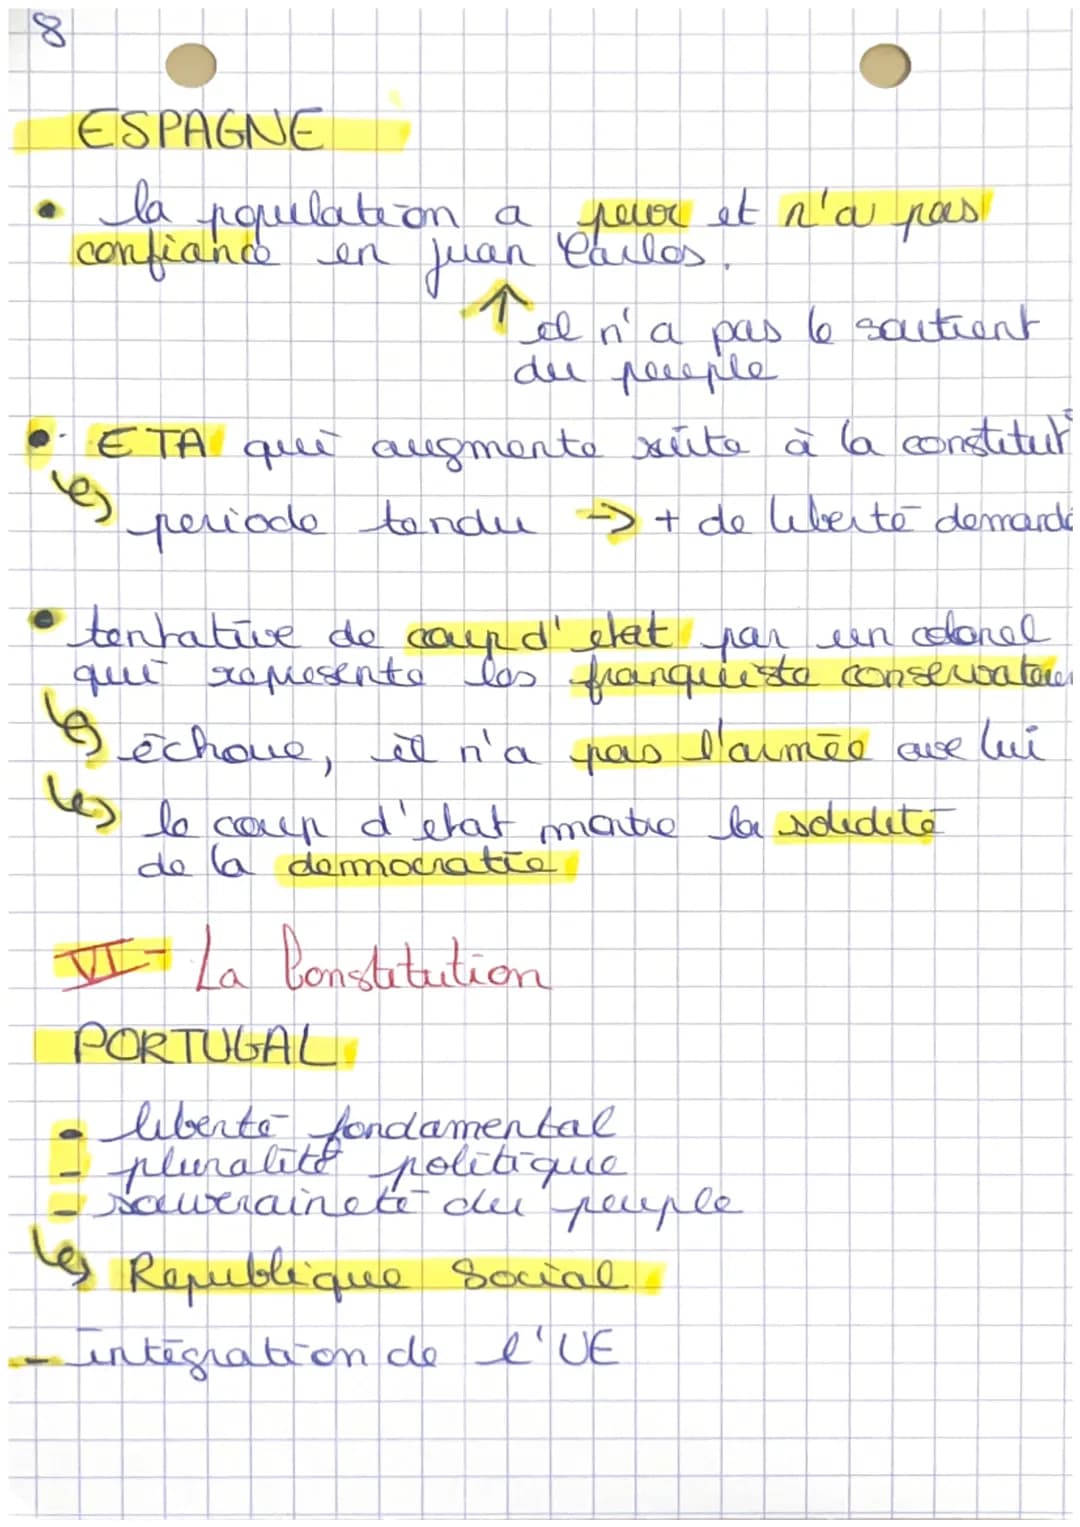 8
ESPAGNE
• la population a peur et n'a pas
confiance en Juan Carlos.
↑ il n'a pas le soutient
du peuple
• ETA qui augmente suite à la constitut°
↳ periode tendu → + de liberté demandé
• tentative de coup d'etat par un colonel
qui represente les franquiste conservateur
↳ échoue, il n'a pas l'armée avec lui
↳ le coup d'etat montre la solidité
de la democratie
VI- La Constitution
PORTUGAL
- liberté fondamental
- pluralité politique
- souveraineté du peuple
↳ Republique Social
- intégration de l'UE